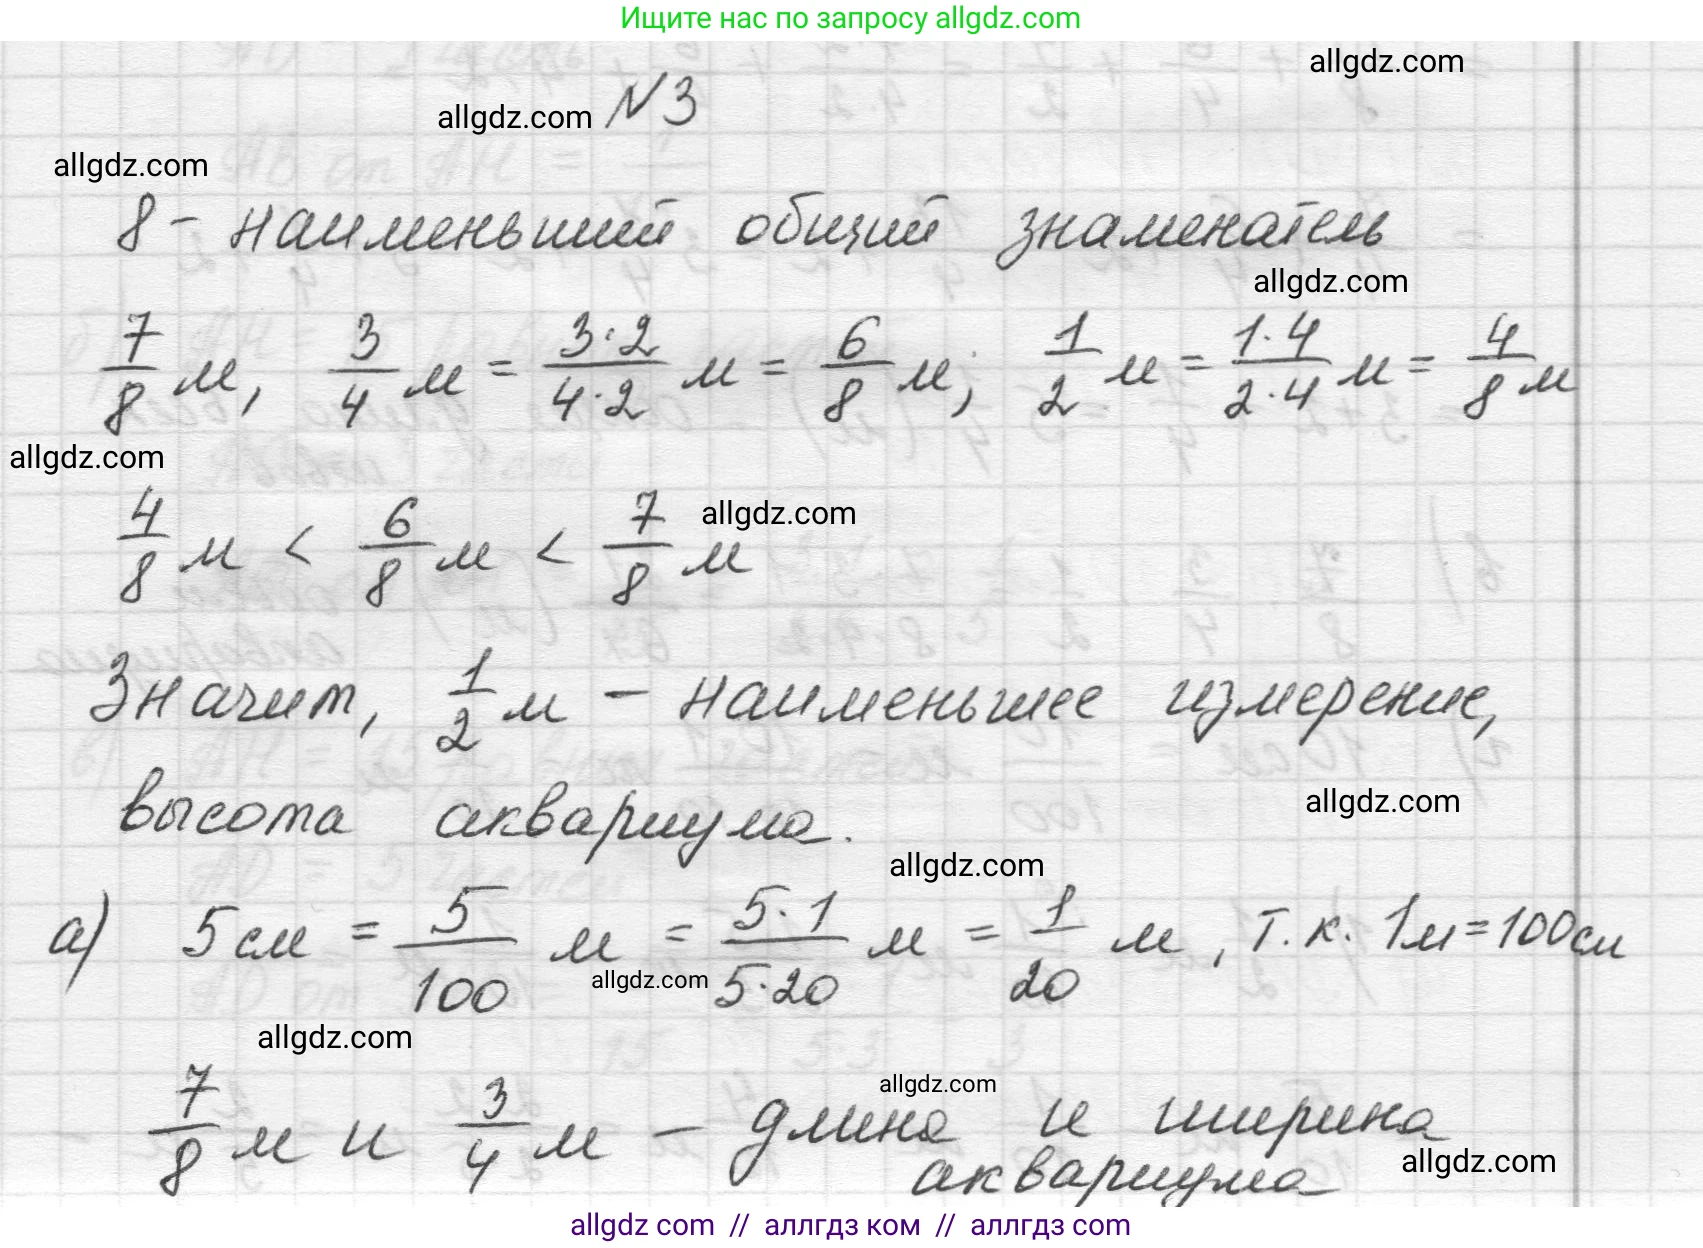 Ищите нас по запросу allgdz.com
allgdz.com
allgdz.com №3
allgdz.com
8 - наименьший общий знаменатель
allgdz.com
7/8 м, 3/4 м = 3·2/4·2 м = 6/8 м; 1/2 м = 1·4/2·4 м = 4/8 м
allgdz.com
4/8 м < 6/8 м < 7/8 м allgdz.com
Значит, 1/2 м - наименьшее измерение,
высота аквариума.
allgdz.com
allgdz.com
а) 5 см = 5/100 м = 5·1/5·20 м = 1/20 м, т.к. 1м=100см
allgdz.com
allgdz.com
allgdz.com
7/8 м и 3/4 м - длина и ширина
аквариума
allgdz.com
allgdz com // аллгдз ком // аллгдз com